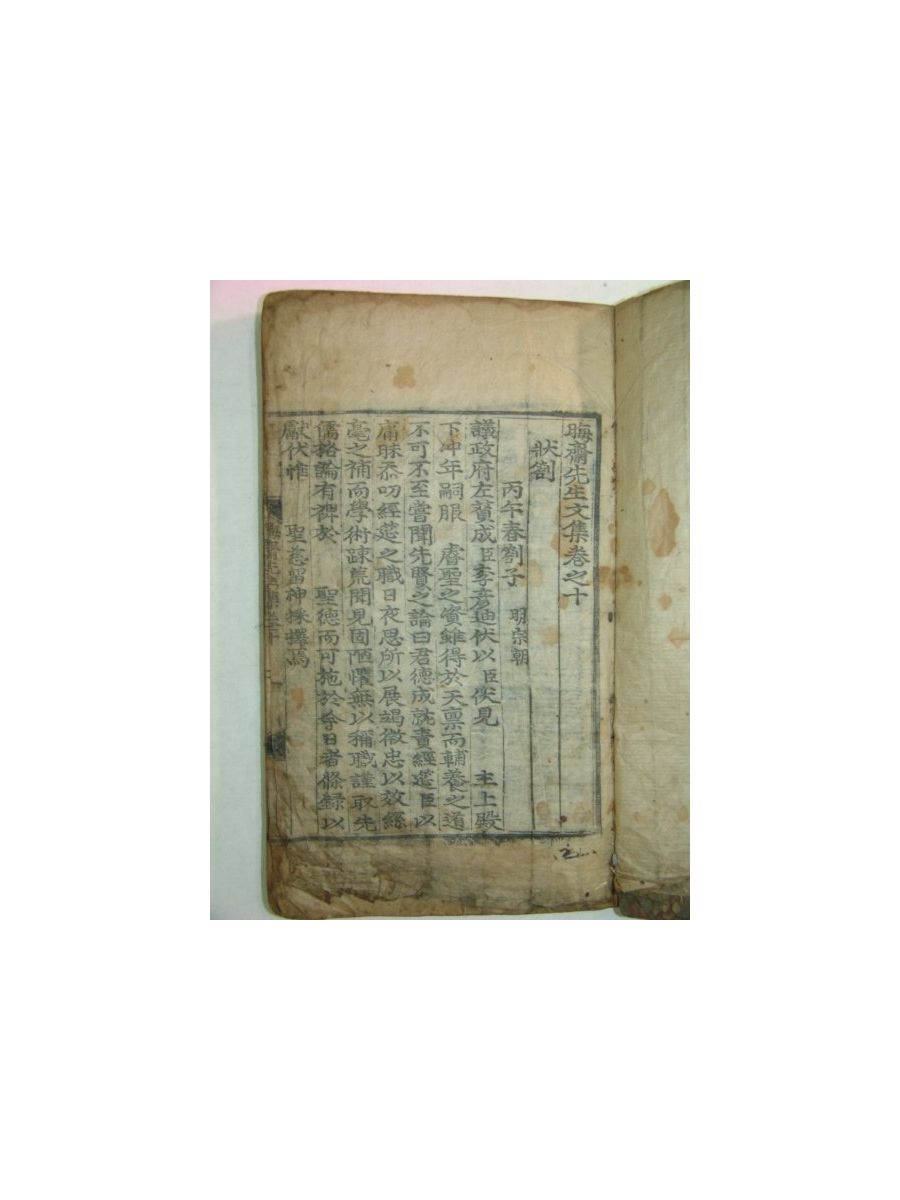 晦齋先生文集卷之十
狀劄
丙午春劄子 明宗朝
議政府左贊成臣李彦迪伏以臣伏見 主上殿
下冲年嗣服 睿聖之資雖得於天禀而輔養之道
不可不至嘗聞先賢之論曰君德成就責經筵臣以
庸昧忝叨經筵之職日夜思所以展竭微忠以效絲
毫之補而學術疎荒聞見固陋懼無以稱職謹取先
儒格論有裨於 聖德而可施於今日者條錄以
獻伏惟 聖慈留神採擇焉